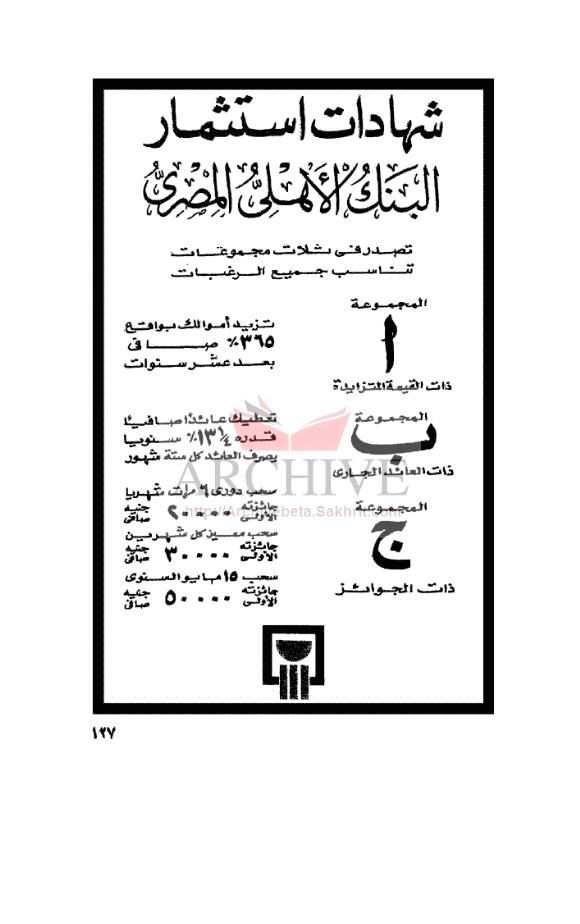 شهادات استثمار
البنك الأهلي المصري
تصدر فى ثلاث مجموعات
تناسب جميع الرغبات
المجموعة
ا
ذات القيمة المتزايدة
تزيد أموالك بواقع
٣٦٥٪ صافى
بعد عشر سنوات
المجموعة
ب
ذات العائد الجارى
تعطيك عائدا صافيا
قدره ١٣ ١/٤٪ سنويا
يصرف العائد كل ستة شهور
المجموعة
ج
ذات الجوائز
سحب دورى ٦ مرات شهريا
جائزته الأولى ٢٠٠٠٠ جنيه صافى
سحب مميز كل شهرين
جائزته الأولى ٣٠٠٠٠ جنيه صافى
سحب ١٥ مايو السنوى
جائزته الأولى ٥٠٠٠٠ جنيه صافى
ARCHIVE
http://Archivebeta.Sakhrit.com
١٢٧